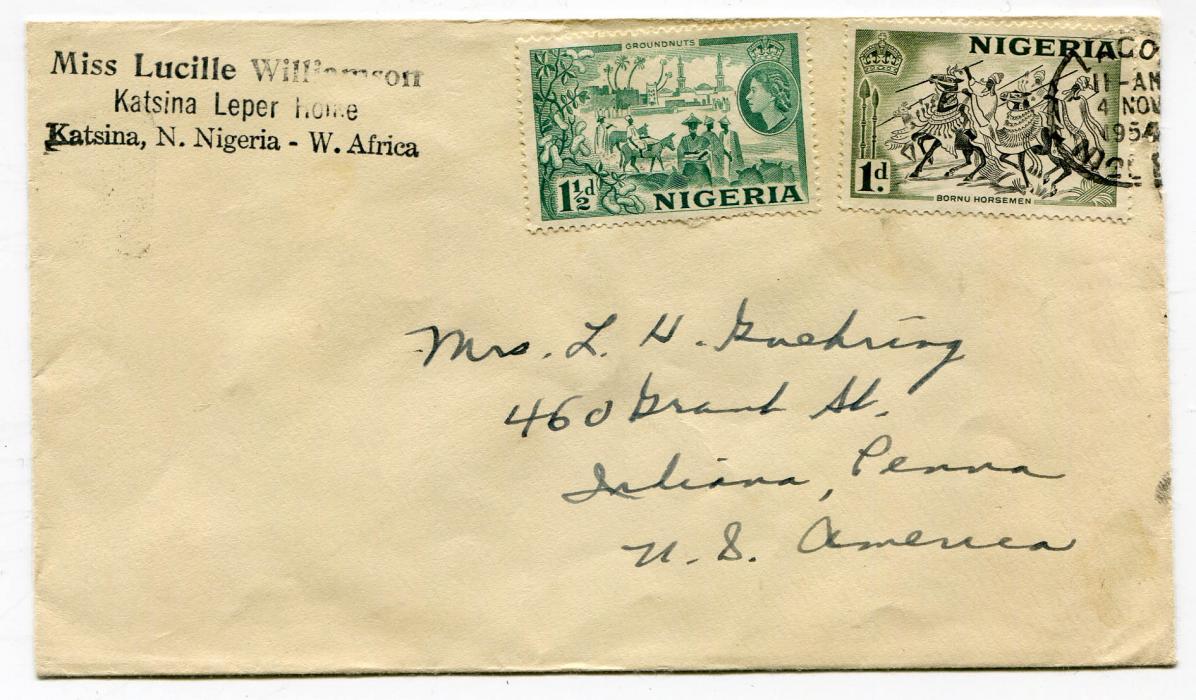 Miss Lucille Williamson
Katsina Leper Home
Katsina, N. Nigeria - W. Africa
GROUNDNUTS
1½d
NIGERIA
NIGERIA
1d.
BORNU HORSEMEN
AGO
11-AM
4 NOV
1954
Mrs. L. H. Goehring
460 Grant St.
Indiana, Penna
U. S. America